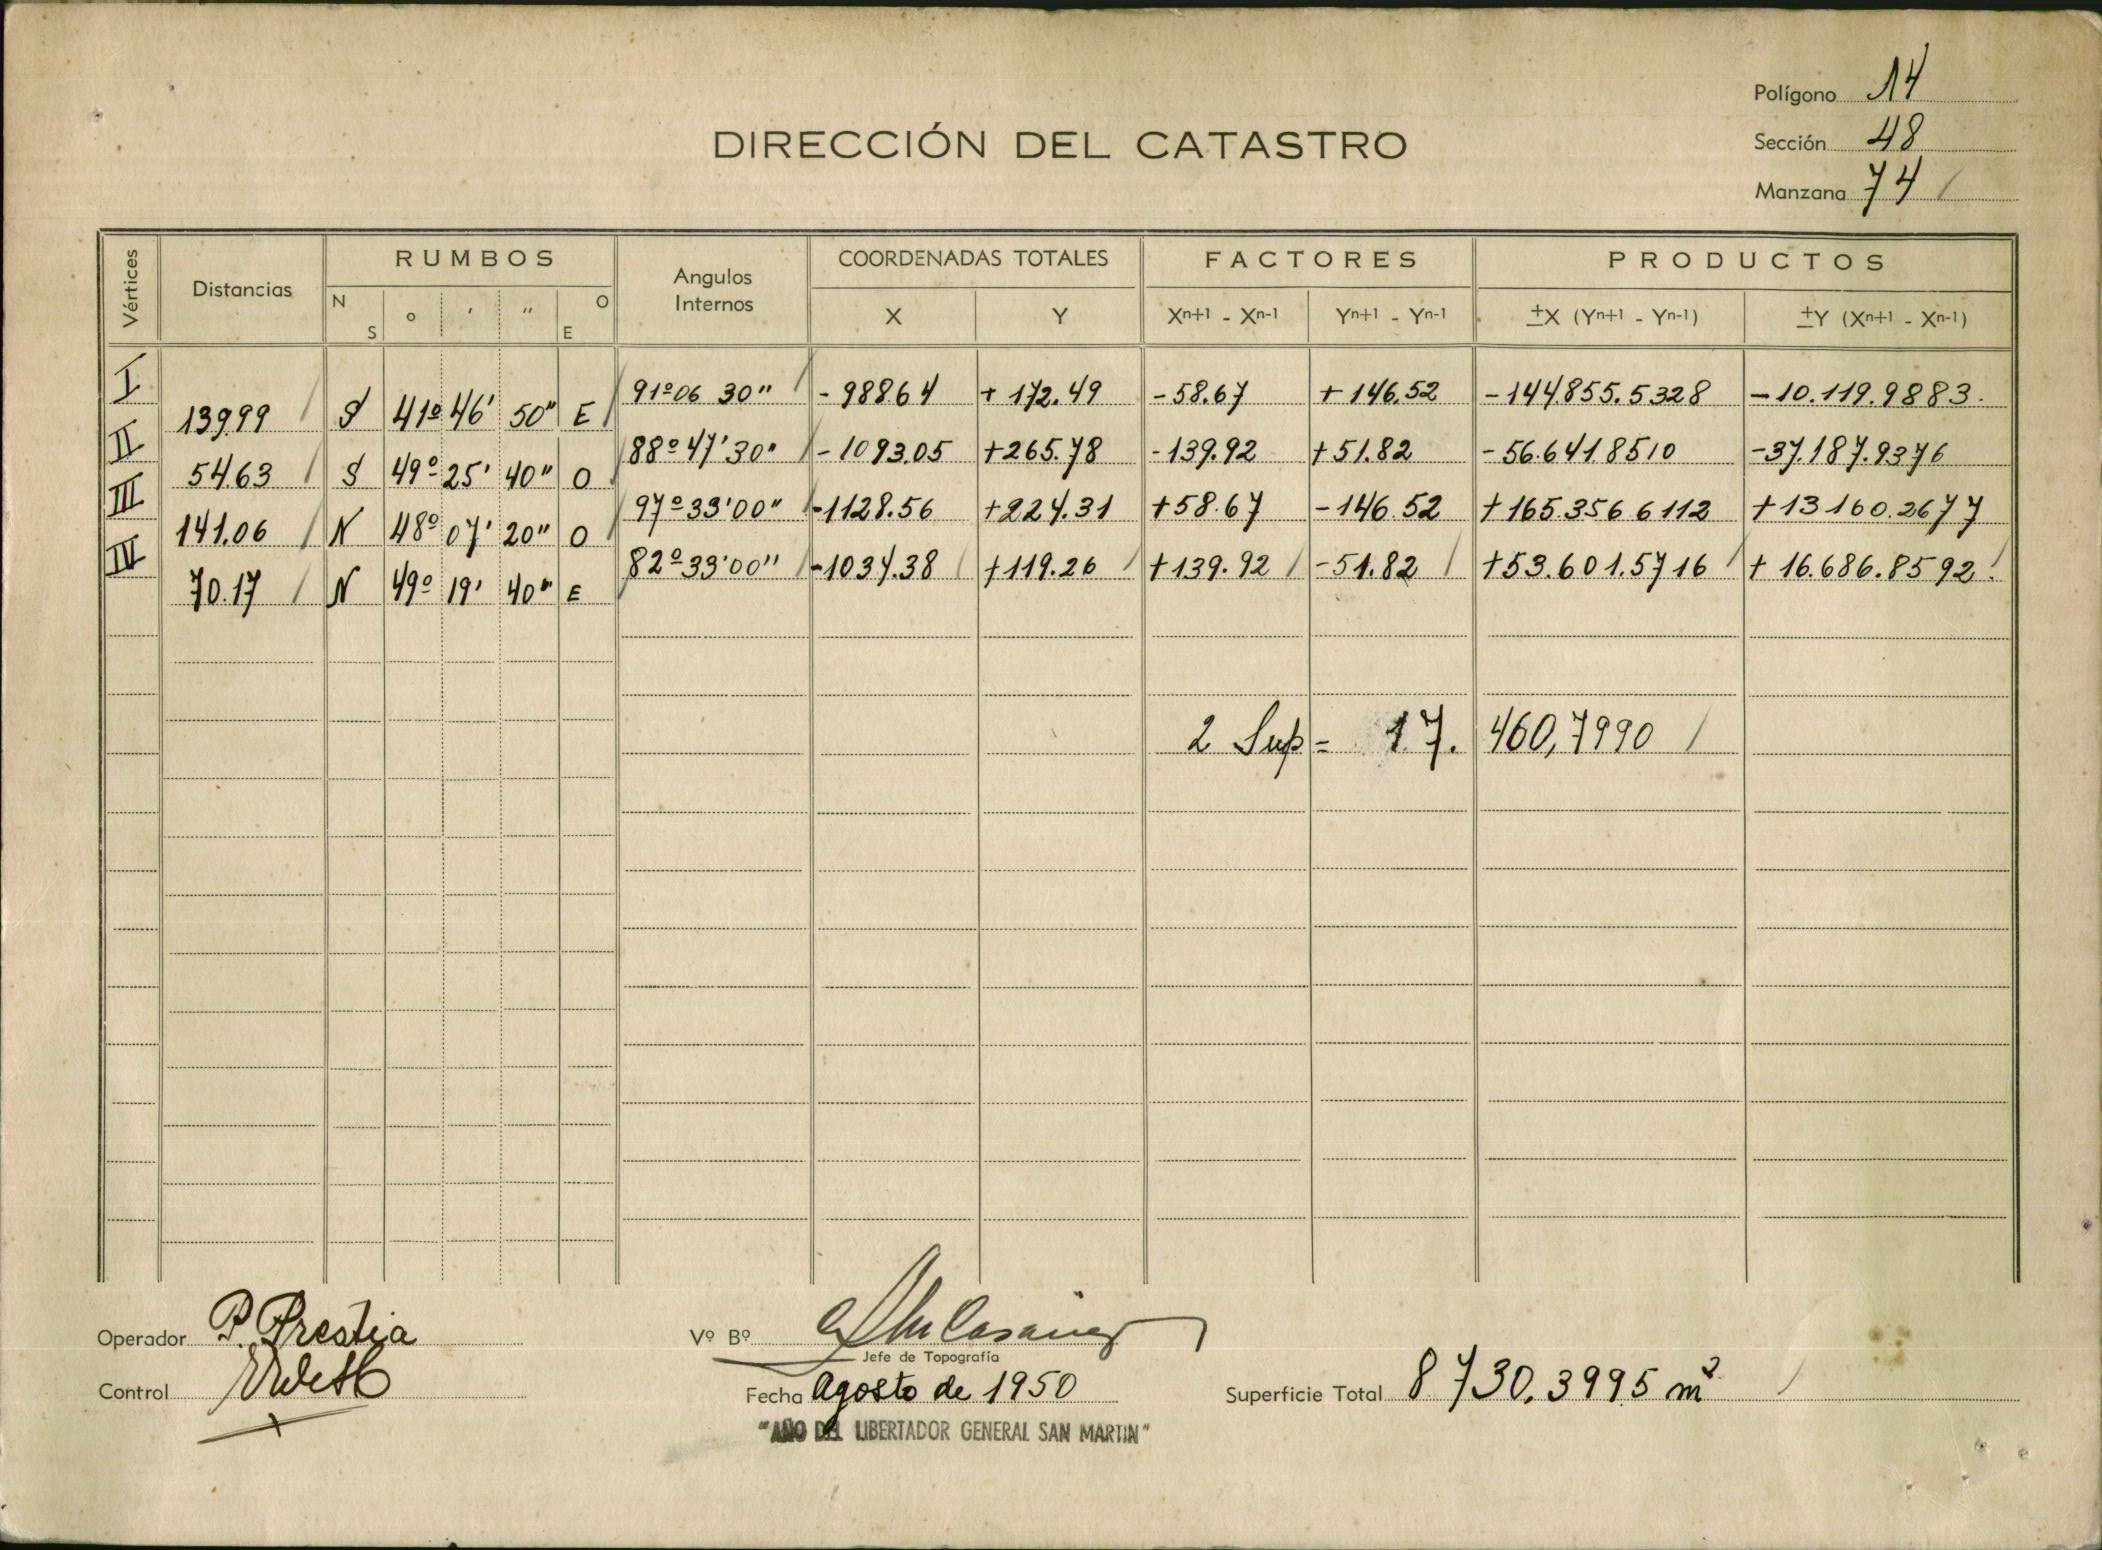 Polígono 14
DIRECCIÓN DEL CATASTRO
Sección 48
Manzana 74
Vértices Distancias RUMBOS Angulos Internos COORDENADAS TOTALES FACTORES PRODUCTOS
N S ° ' " O E X Y Xn+1 - Xn-1 Yn+1 - Yn-1 ±X (Yn+1 - Yn-1) ±Y (Xn+1 - Xn-1)
I 91º06 30" - 98864 + 172.49 -58.67 + 146.52 -144.855.5328 -10.119.9883.
139.99 S 41º 46' 50" E
II 88º47'30" - 1093.05 +265.78 -139.92 +51.82 -56.641.8510 -37.187.9376
54.63 S 49º 25' 40" O
III 97º33'00" -1128.56 +224.31 +58.67 -146.52 +165.356 6112 +13160.2677
141.06 N 48º 07' 20" O
IV 82º33'00" -1034.38 +119.26 +139.92 -51.82 +53.601.5716 + 16.686.8592.
70.17 N 49º 19' 40" E
2 Sup = 17.460,7990
Operador P. Prestia
Vº Bº
Jefe de Topografía
Control
Fecha Agosto de 1950
Superficie Total 8730.3995 m²
"AÑO DEL LIBERTADOR GENERAL SAN MARTIN"